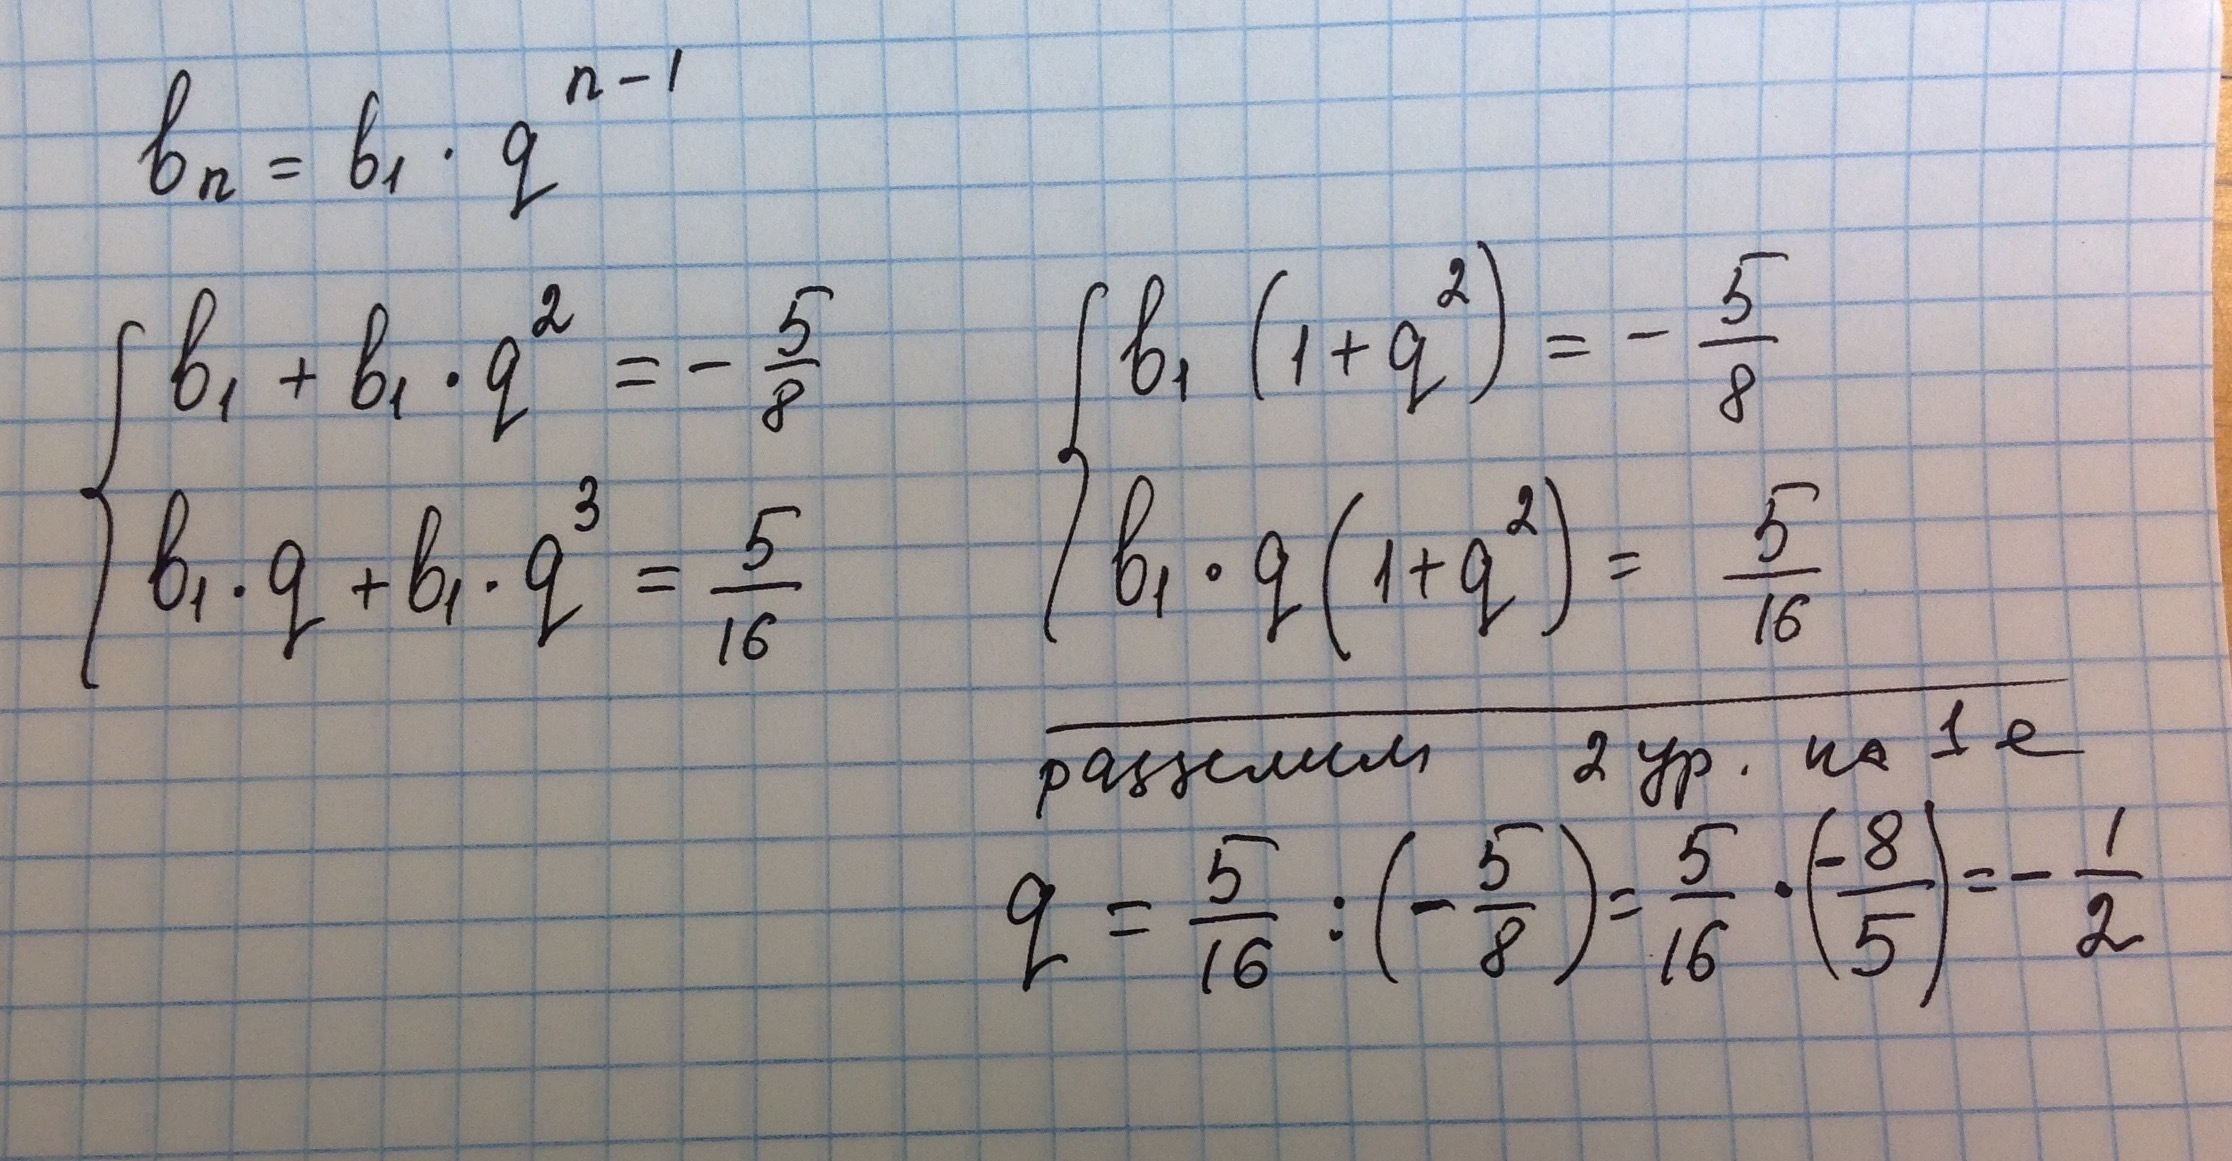 bₙ = b₁ · qⁿ⁻¹
{ b₁ + b₁ · q² = - 5/8
b₁ · q + b₁ · q³ = 5/16
{ b₁ (1 + q²) = - 5/8
b₁ · q (1 + q²) = 5/16
разделим 2 ур. на 1 е
q = 5/16 : (- 5/8) = 5/16 · (-8/5) = - 1/2